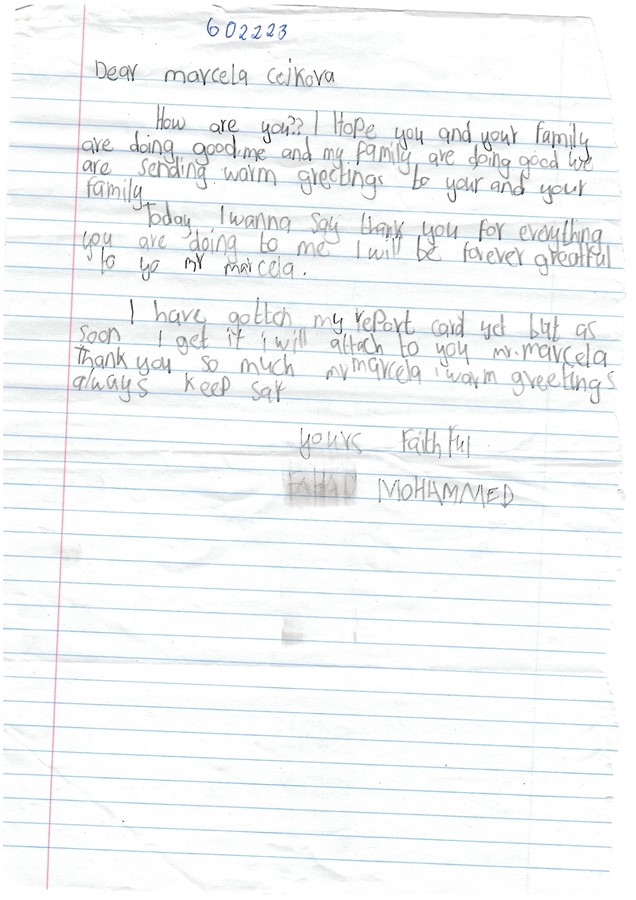 602223
Dear marcela Ceikova
How are you?? I Hope you and your family
are doing good.me and my family are doing good we
are sending warm greetings to your and your
family
Today I wanna say thank you for everything
you are doing to me I will be forever greatful
to yo mr marcela.
I have gottch my report card yet but as
soon I get it i will attach to you mr.marcela
Thank you so much mr marcela i warm greetings
always keep saf
yours Faithful
FAHAD MOHAMMED